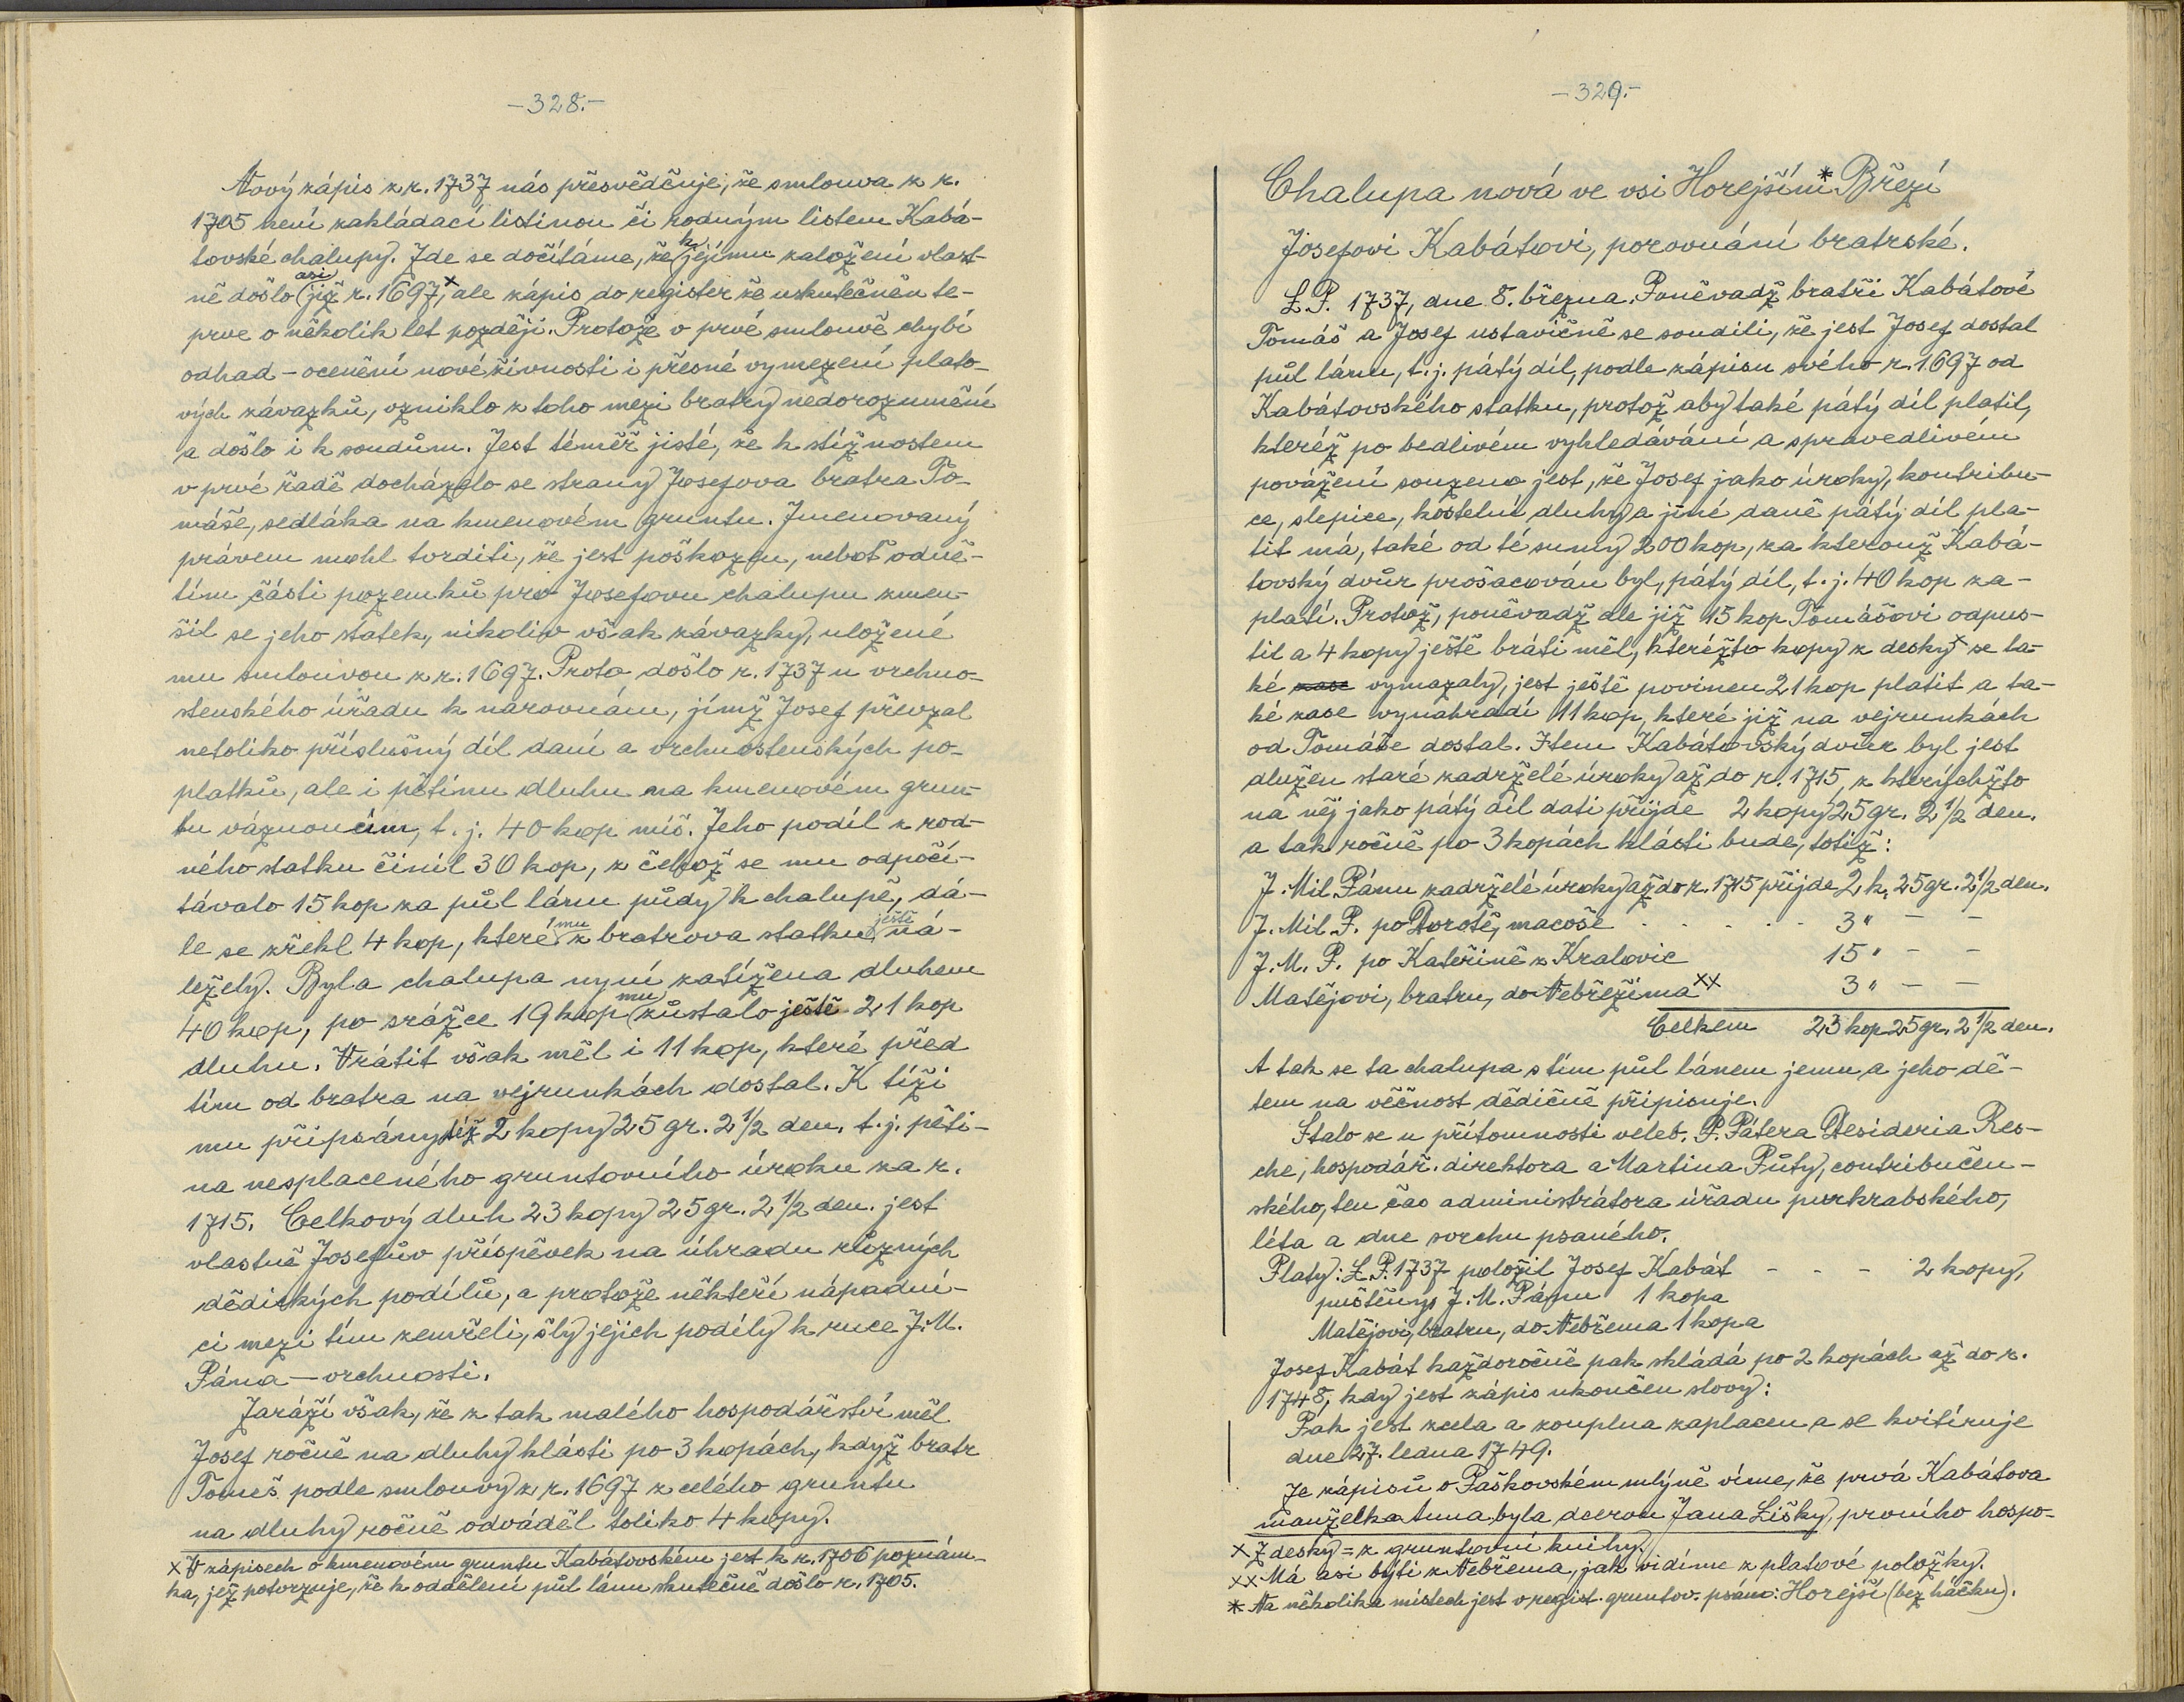 -328.-
Nový zápis z r. 1737 nás přesvědčuje, že smlouva z r.
1705 není zakládací listinou či rodným listem Kabá-
tovské chalupy. Zde se dočítáme, že k jejímu založení vlast-
ně došlo asi již r. 1697,× ale zápis do register že uskutečněn te-
prve o několik let později. Protože v prvé smlouvě chybí
odhad - ocenění nové živnosti i přesné vymezení plato-
vých závazků, vzniklo z toho mezi bratry nedorozumění
a došlo i k soudům. Jest téměř jisté, že k stížnostem
v prvé řadě docházelo se strany Josefova bratra To-
máše, sedláka na kmenovém gruntu. Jmenovaný
právem mohl tvrditi, že jest poškozen, neboť odně-
tím části pozemků pro Josefovu chalupu zmen-
šil se jeho statek, nikoliv však závazky, uložené
mu smlouvou z r. 1697. Proto došlo r. 1737 u vrchno-
stenského úřadu k narovnání, jímž Josef převzal
netoliko příslušný díl daní a vrchnostenských po-
platků, ale i pětinu dluhu na kmenovém grun-
tu váznoucím, t. j. 40 kop míš. Jeho podíl z rod-
ného statku činil 30 kop, z čehož se mu odpočí-
távalo 15 kop za půl lánu půdy k chalupě, dá-
le se zřekl 4 kop, které mu z bratrova statku ještě ná-
ležely. Byla chalupa nyní zatížena dluhem
40 kop, po srážce 19 kop mu zůstalo ještě 21 kop
dluhu. Vrátit však měl i 11 kop, které před
tím od bratra na vejrunkách dostal. K tíži
mu připsány též 2 kopy 25 gr. 2 1/2 den. t. j. pěti-
na nesplaceného gruntovního úroku za r.
1715. Celkový dluh 23 kopy 25 gr. 2 1/2 den. jest
vlastně Josefův příspěvek na úhradu různých
dědických podílů, a protože někteří nápadní-
ci mezi tím zemřeli, šly jejich podíly k ruce J. M.
Pána - vrchnosti.
Zaráží však, že z tak malého hospodářství měl
Josef ročně na dluhy klásti po 3 kopách, když bratr
Tomeš podle smlouvy z r. 1697 z celého gruntu
na dluhy ročně odváděl toliko 4 kopy.
× V zápisech o kmenovém gruntu Kabátovském jest k r. 1706 poznám-
ka, jež potvrzuje, že k oddělení půl lánu skutečně došlo r. 1705.
-329.-
Chalupa nová ve vsi Horejším* Březí
Josefovi Kabátovi, porovnání bratrské.
L. P. 1737, dne 8. března. Poněvadž bratři Kabátové
Tomáš a Josef ustavičně se soudili, že jest Josef dostal
půl lánu, t. j. pátý díl, podle zápisu svého r. 1697 od
Kabátovského statku, protož aby také pátý díl platil,
kteréž po bedlivém vyhledávání a spravedlivém
povážení souzeno jest, že Josef jako úroky, kontribu-
ce, slepice, kostelní dluhy a jiné daně pátý díl pla-
tit má, také od té sumy 200 kop, za kterouž Kabá-
tovský dvůr prošacován byl, pátý díl, t. j. 40 kop za-
platí. Protož, poněvadž ale již 15 kop Tomášovi odpus-
til a 4 kopy ještě bráti měl, kteréžto kopy z desky× se ta-
ké zase vymazaly, jest ještě povinen 21 kop platit a ta-
ké zase vynahradí 11 kop, které již na vejrunkách
od Tomáše dostal. Item Kabátovský dvůr byl jest
dlužen staré zadrželé úroky až do r. 1715, z kterýchžto
na něj jako pátý díl dati přijde 2 kopy 25 gr. 2 1/2 den.
a tak ročně po 3 kopách klásti bude, totiž:
J. Mil. Pánu zadrželé úroky až do r. 1715 přijde 2 k. 25 gr. 2 1/2 den.
J. Mil. P. po Dorotě, macoše . . . . . 3 " - -
J. M. P. po Kateřině z Kralovic 15 " - -
Matějovi, bratru, do Nebřežima ×× 3 " - -
Celkem 23 kop 25 gr. 2 1/2 den.
A tak se ta chalupa s tím půl lánem jemu a jeho dě-
tem na věčnost dědičně připisuje.
Stalo se u přítomnosti veleb. P. Pátera Desideria Res-
che, hospodář. direktora a Martina Půty, contribučen-
ského, ten čas administrátora úřadu purkrabského,
léta a dne svrchu psaného.
Platy: L. P. 1737 položil Josef Kabát - - - 2 kopy,
puštěny J. M. Pánu 1 kopa
Matějovi, bratru, do Nebřema 1 kopa
Josef Kabát každoročně pak skládá po 2 kopách až do r.
1748, kdy jest zápis ukončen slovy:
Pak jest zcela a zouplna zaplacen a se kvitíruje
dne 27. ledna 1749.
Ze zápisů o Paškovském mlýně víme, že prvá Kabátova
manželka Anna byla dcerou Jana Lišky, prvního hospo-
× Z desky = z gruntovní knihy.
×× Má asi býti z Nebřema, jak vidíme z platové položky.
* Na několika místech jest v regist. gruntov. psáno: Horejší (bez háčku).